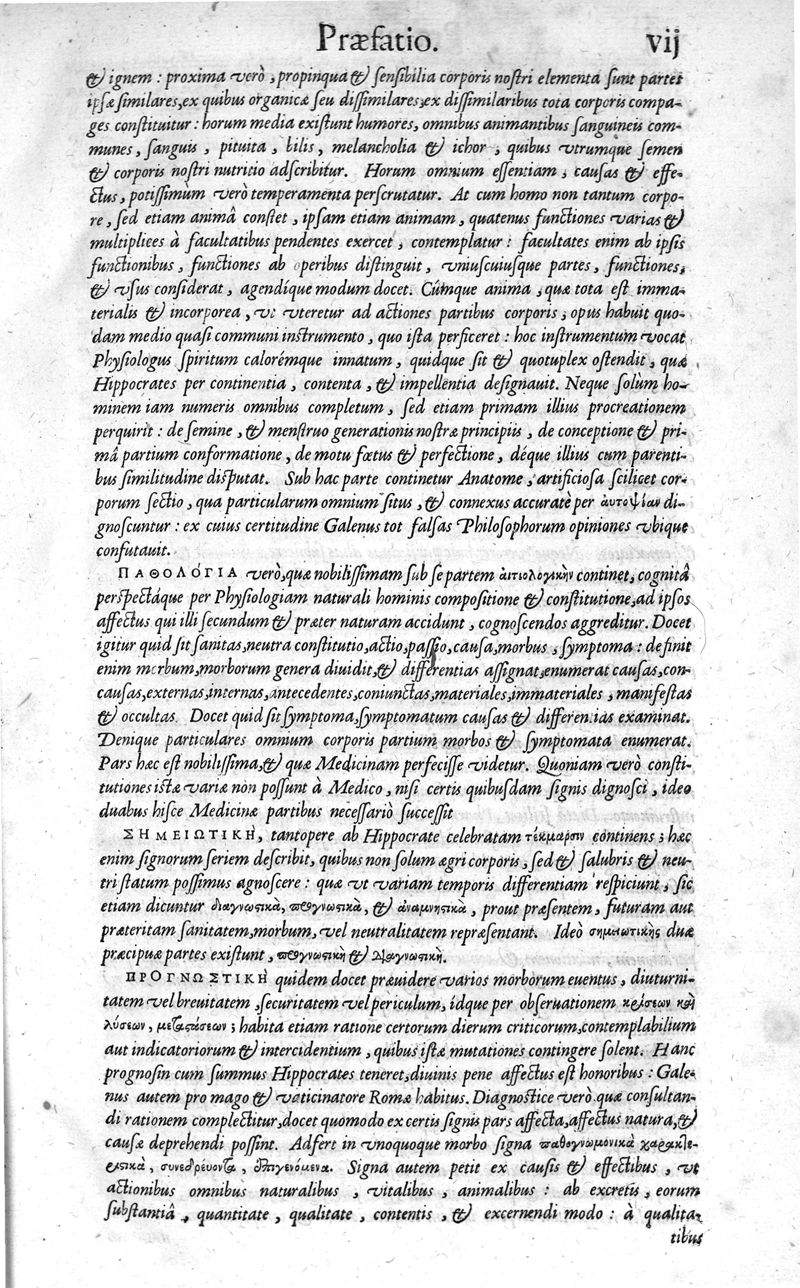 Præfatio. vij
& ignem : proxima verò , propinqua & sensibilia corporis nostri elementa sunt partes
ipsæ similares, ex quibus organicæ seu dissimilares, ex dissimilaribus tota corporis compa-
ges constituitur : horum media existunt humores, omnibus animantibus sanguineis com-
munes, sanguis , pituita , bilis , melancholia & ichor , quibus vtrumque semen
& corporis nostri nutritio adscribitur. Horum omnium essentiam , causas & effe-
ctus, potissimùm verò temperamenta perscrutatur. At cum homo non tantum corpo-
re , sed etiam animâ constet , ipsam etiam animam, quatenus functiones varias &
multiplices à facultatibus pendentes exercet , contemplatur : facultates enim ab ipsis
functionibus , functiones ab operibus distinguit , vniuscuiusque partes , functiones,
& vsus considerat , agendíque modum docet. Cúmque anima , quæ tota est imma-
terialis & incorporea , vt vteretur ad actiones partibus corporis , opus habuit quo-
dam medio quasi communi instrumento , quo ista perficeret : hoc instrumentum vocat
Physiologus spiritum calorémque innatum , quidque sit & quotuplex ostendit , quæ
Hippocrates per continentia , contenta , & impellentia designauit. Neque solùm ho-
minem iam numeris omnibus completum , sed etiam primam illius procreationem
perquirit : de semine , & menstruo generationis nostræ principiis , de conceptione & pri-
mâ partium conformatione , de motu fœtus & perfectione , déque illius cum parenti-
bus similitudine disputat. Sub hac parte continetur Anatome , artificiosa scilicet cor-
porum sectio , qua particularum omnium situs , & connexus accuratè per αὐτοψίαν di-
gnoscuntur : ex cuius certitudine Galenus tot falsas Philosophorum opiniones vbique
confutauit.
ΠΑΘΟΛΟΓΙΑ verò, quæ nobilissimam sub se partem αἰτιολογικὴν continet, cognitâ
perspectáque per Physiologiam naturali hominis compositione & constitutione, ad ipsos
affectus qui illi secundum & præter naturam accidunt , cognoscendos aggreditur. Docet
igitur quid sit sanitas, neutra constitutio, actio, passio, causa, morbus , symptoma : definit
enim morbum, morborum genera diuidit, & differentias assignat, enumerat causas, con-
causas, externas, internas, antecedentes, coniunctas, materiales, immateriales , manifestas
& occultas. Docet quid sit symptoma, symptomatum causas & differentias examinat.
Denique particulares omnium corporis partium morbos & symptomata enumerat.
Pars hæc est nobilissima, & quæ Medicinam perfecisse videtur. Quoniam verò consti-
tutiones istæ variæ non possunt à Medico , nisi certis quibusdam signis dignosci , ideo
duabus hisce Medicinæ partibus necessariò successit
ΣΗΜΕΙΩΤΙΚΗ, tantopere ab Hippocrate celebratam τέκμαρσιν continens ; hæc
enim signorum seriem describit, quibus non solum ægri corporis , sed & salubris & neu-
tri statum possimus agnoscere : quæ vt variam temporis differentiam respiciunt , sic
etiam dicuntur διαγνωστικὰ, προγνωστικὰ, & ἀναμνηστικὰ , prout præsentem, futuram aut
præteritam sanitatem, morbum, vel neutralitatem repræsentant. Ideò σημειωτικῆς duæ
præcipuæ partes existunt , προγνωστικὴ & διαγνωστικὴ.
ΠΡΟΓΝΩΣΤΙΚΗ quidem docet præuidere varios morborum euentus , diuturni-
tatem vel breuitatem , securitatem vel periculum, idque per obseruationem κρίσεων καὶ
λύσεων , μεταστάσεων ; habita etiam ratione certorum dierum criticorum, contemplabilium
aut indicatoriorum & intercidentium , quibus istæ mutationes contingere solent. Hanc
prognosin cum summus Hippocrates teneret, diuinis pene affectus est honoribus : Gale-
nus autem pro mago & vaticinatore Romæ habitus. Diagnostice verò, quæ consultan-
di rationem complectitur, docet quomodo ex certis signis pars affecta, affectus natura, &
causæ deprehendi possint. Adfert in vnoquoque morbo signa παθογνωμονικὰ χαρακτη-
ριστικὰ , συνεδρεύοντα , ἐπιγενόμενα. Signa autem petit ex causis & effectibus , vt
actionibus omnibus naturalibus , vitalibus , animalibus : ab excretis , eorum
substantiâ , quantitate , qualitate , contentis , & excernendi modo : à qualita-
tibus